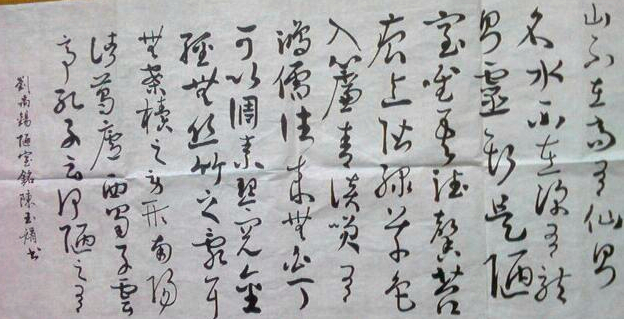 山不在高有仙則
名水不在深有龍
則靈斯是陋
室唯吾德馨苔
痕上階綠草色
入簾青談笑有
鴻儒往來無白丁
可以調素琴閱金
經無絲竹之亂耳
無案牘之勞形南陽
諸葛廬西蜀子雲
亭孔子云何陋之有
劉禹錫陋室銘陳玉娟书